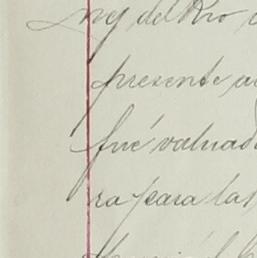 nez del Rio
presente a
fué valuad
ra para las